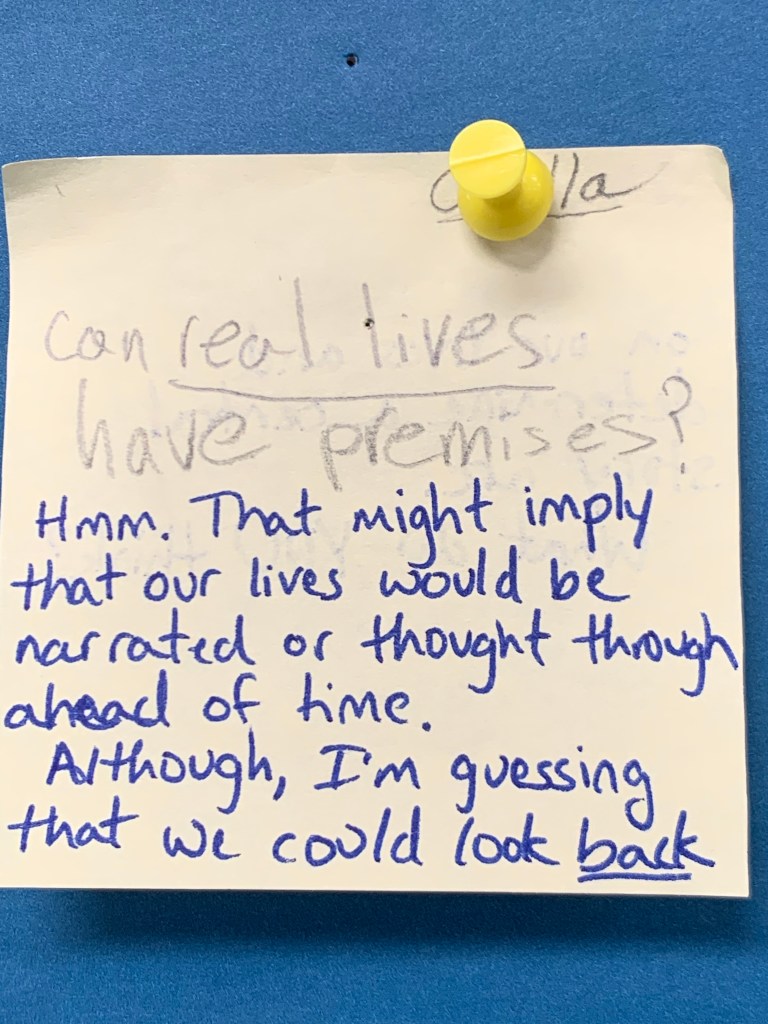 can real lives
have premises?
Hmm. That might imply
that our lives would be
narrated or thought through
ahead of time.
Although, I'm guessing
that we could look back